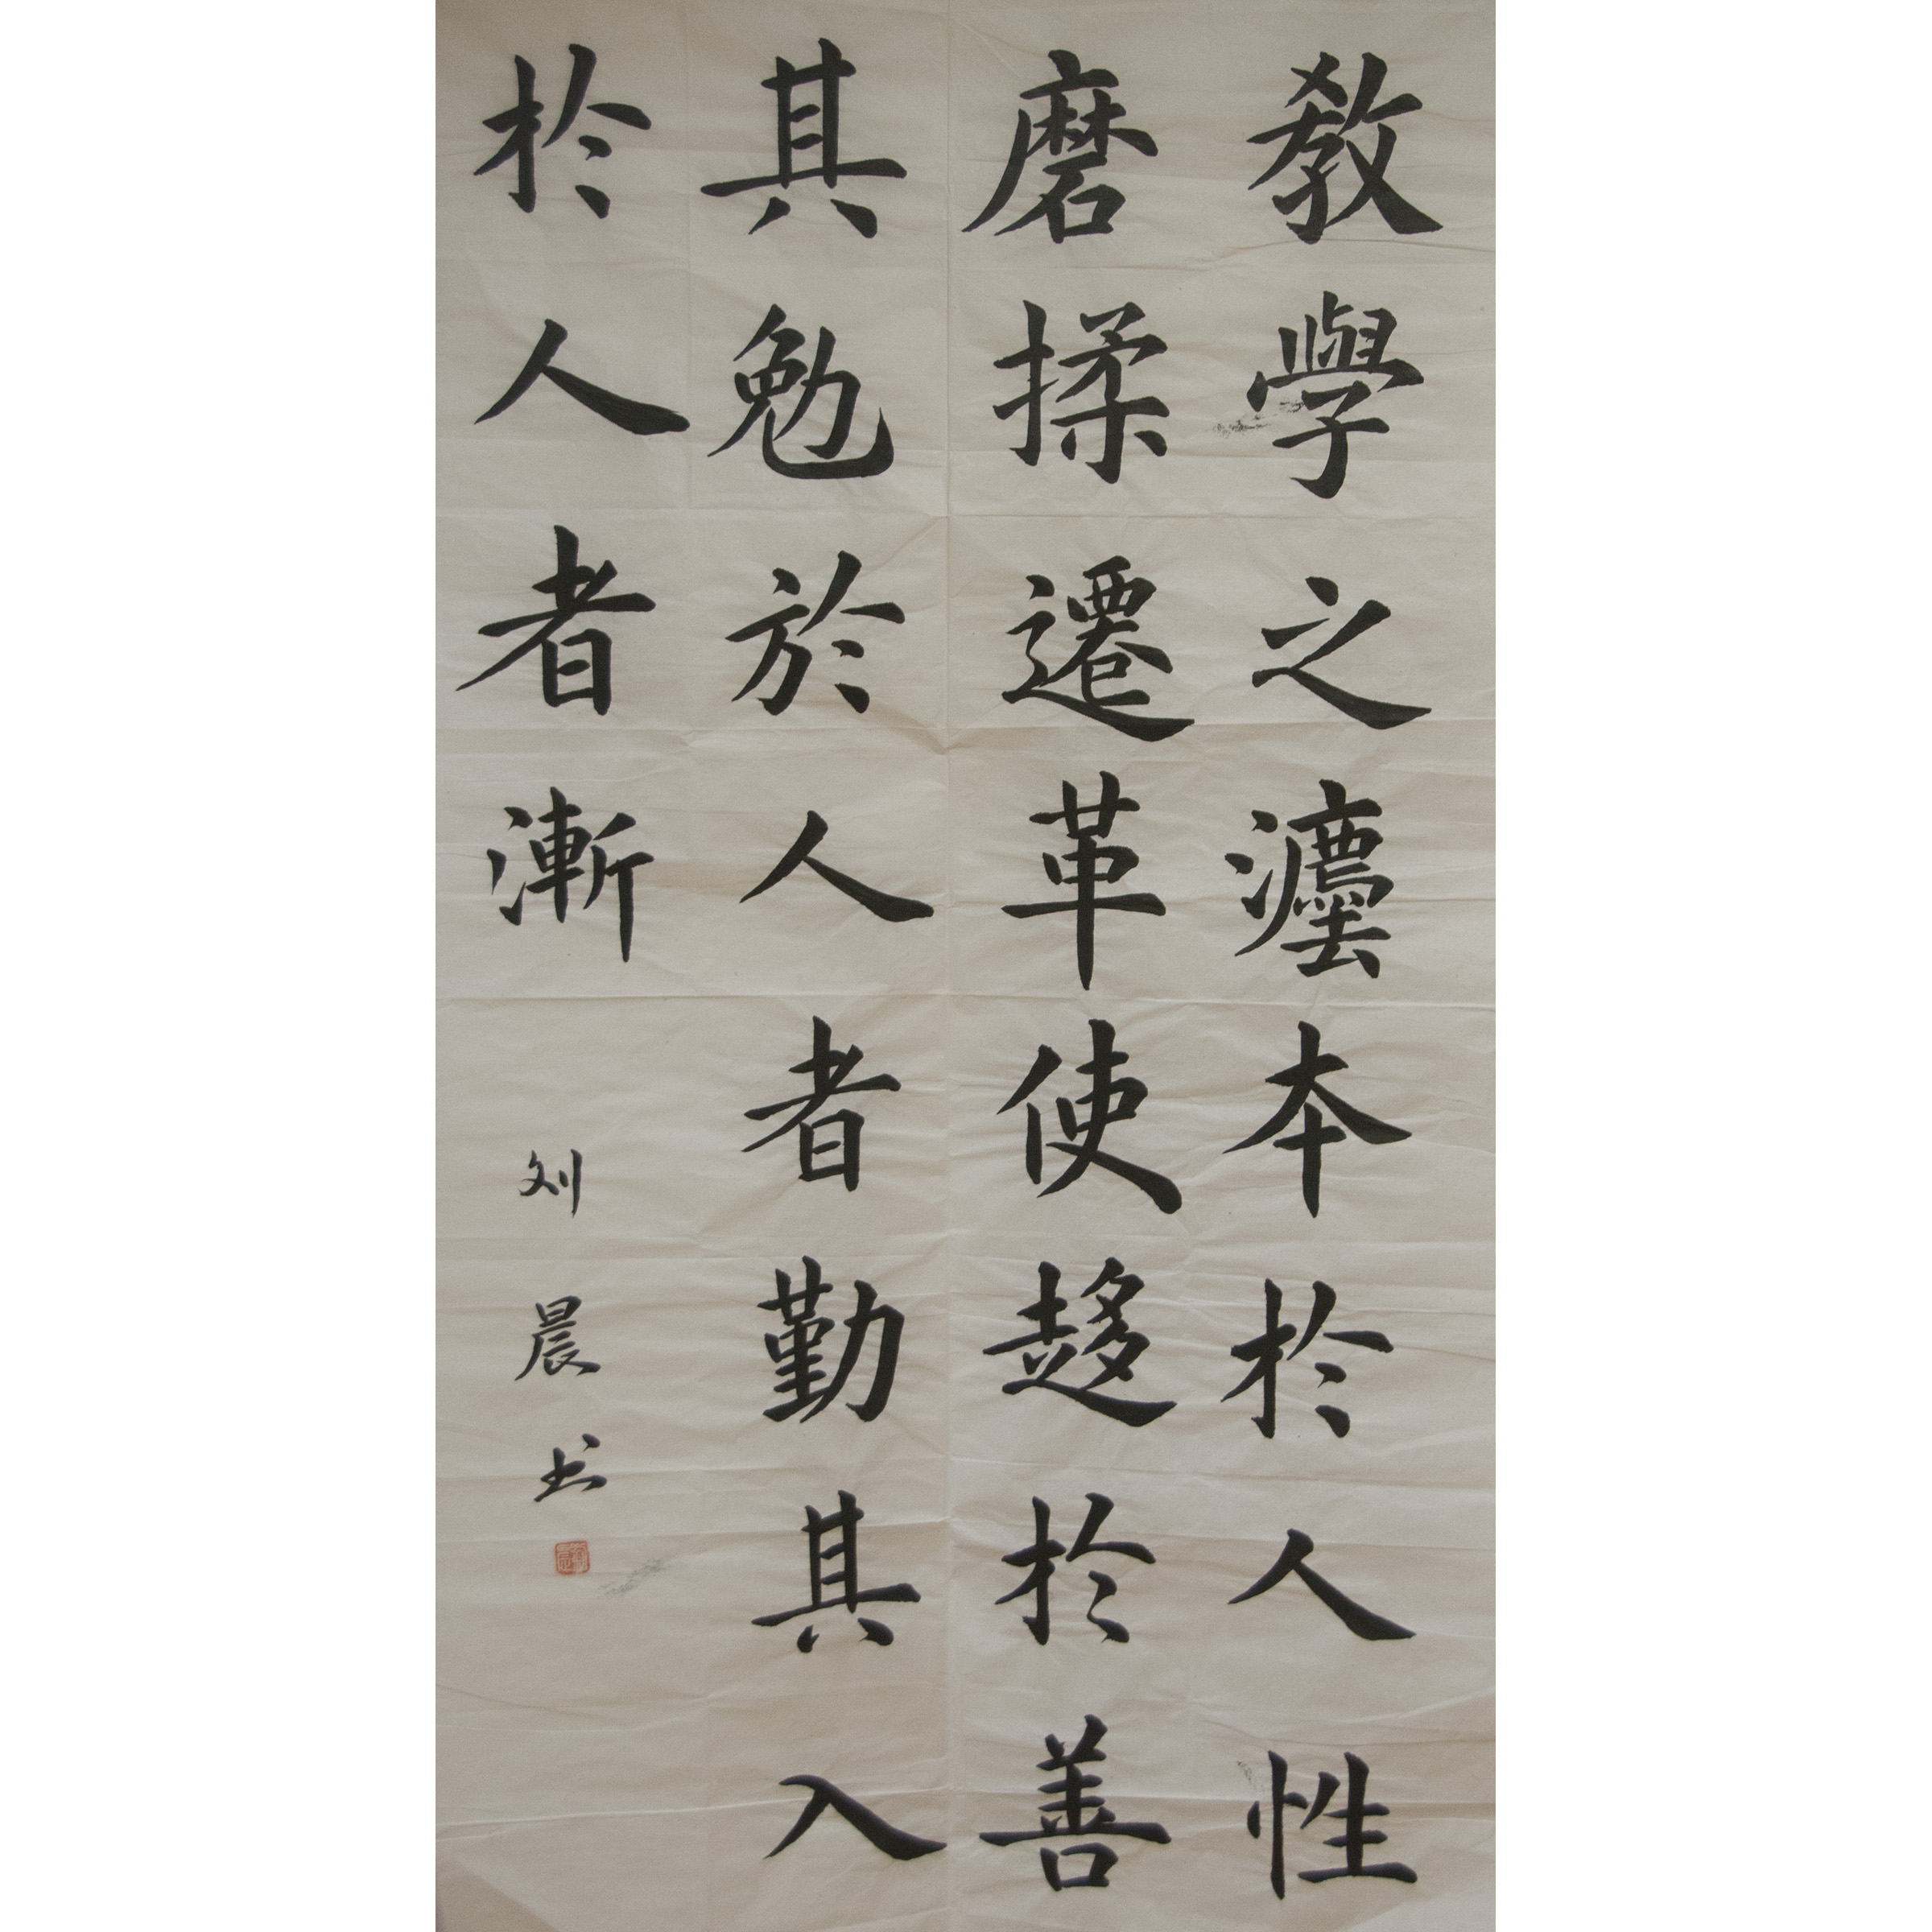 教學之灋本於人性
磨揉遷革使趍於善
其勉於人者勤其入
於人者漸
刘晨书